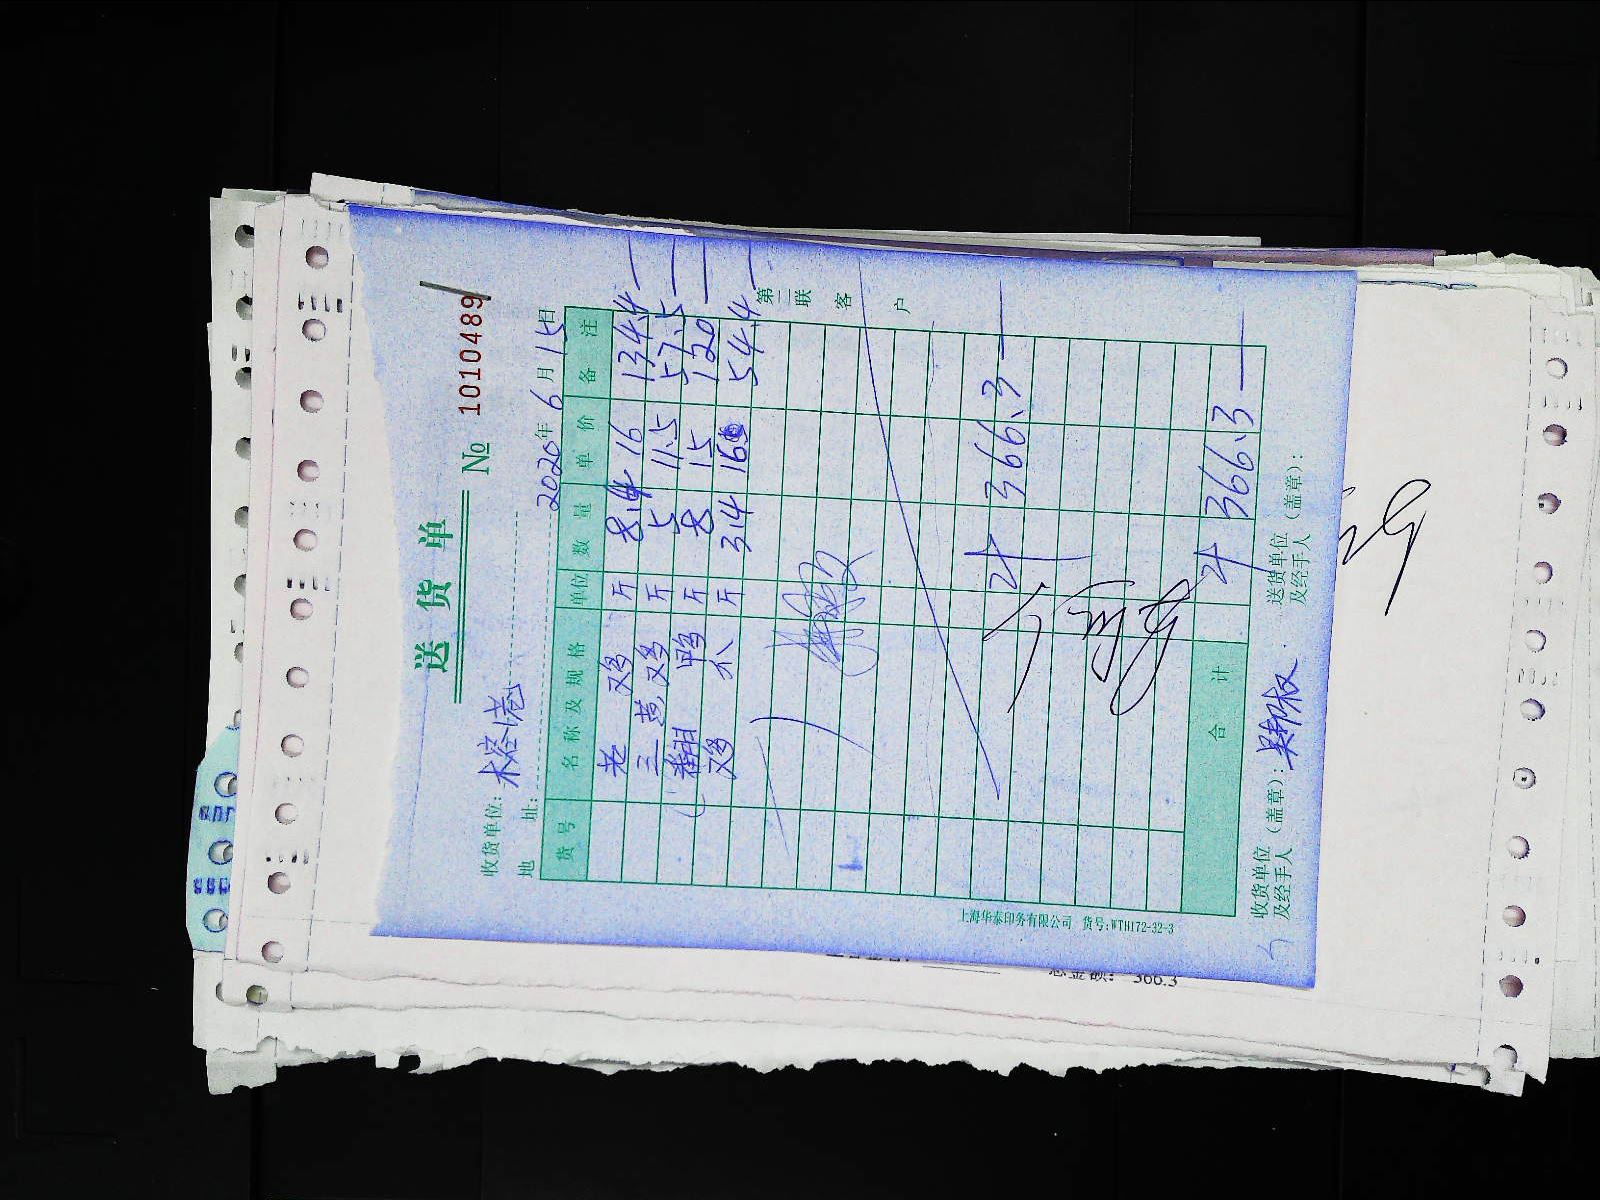 送货单
№ 1010489
收货单位: 木溶港 2020年6月15日
地 址:
货号 名称及规格 单位 数量 单价 备注
老鸡 斤 8.4 16 134.4
三黄鸡 斤 5 11.5 57.5
鸭 斤 8 15 120
鸡 斤 3.4 16 54.4
366.3
合计 366.3
第二联 客户
收货单位(盖章): 送货单位(盖章):
及经手人 及经手人
上海华泰印务有限公司 货号:WTH172-32-3
总金额: 366.3